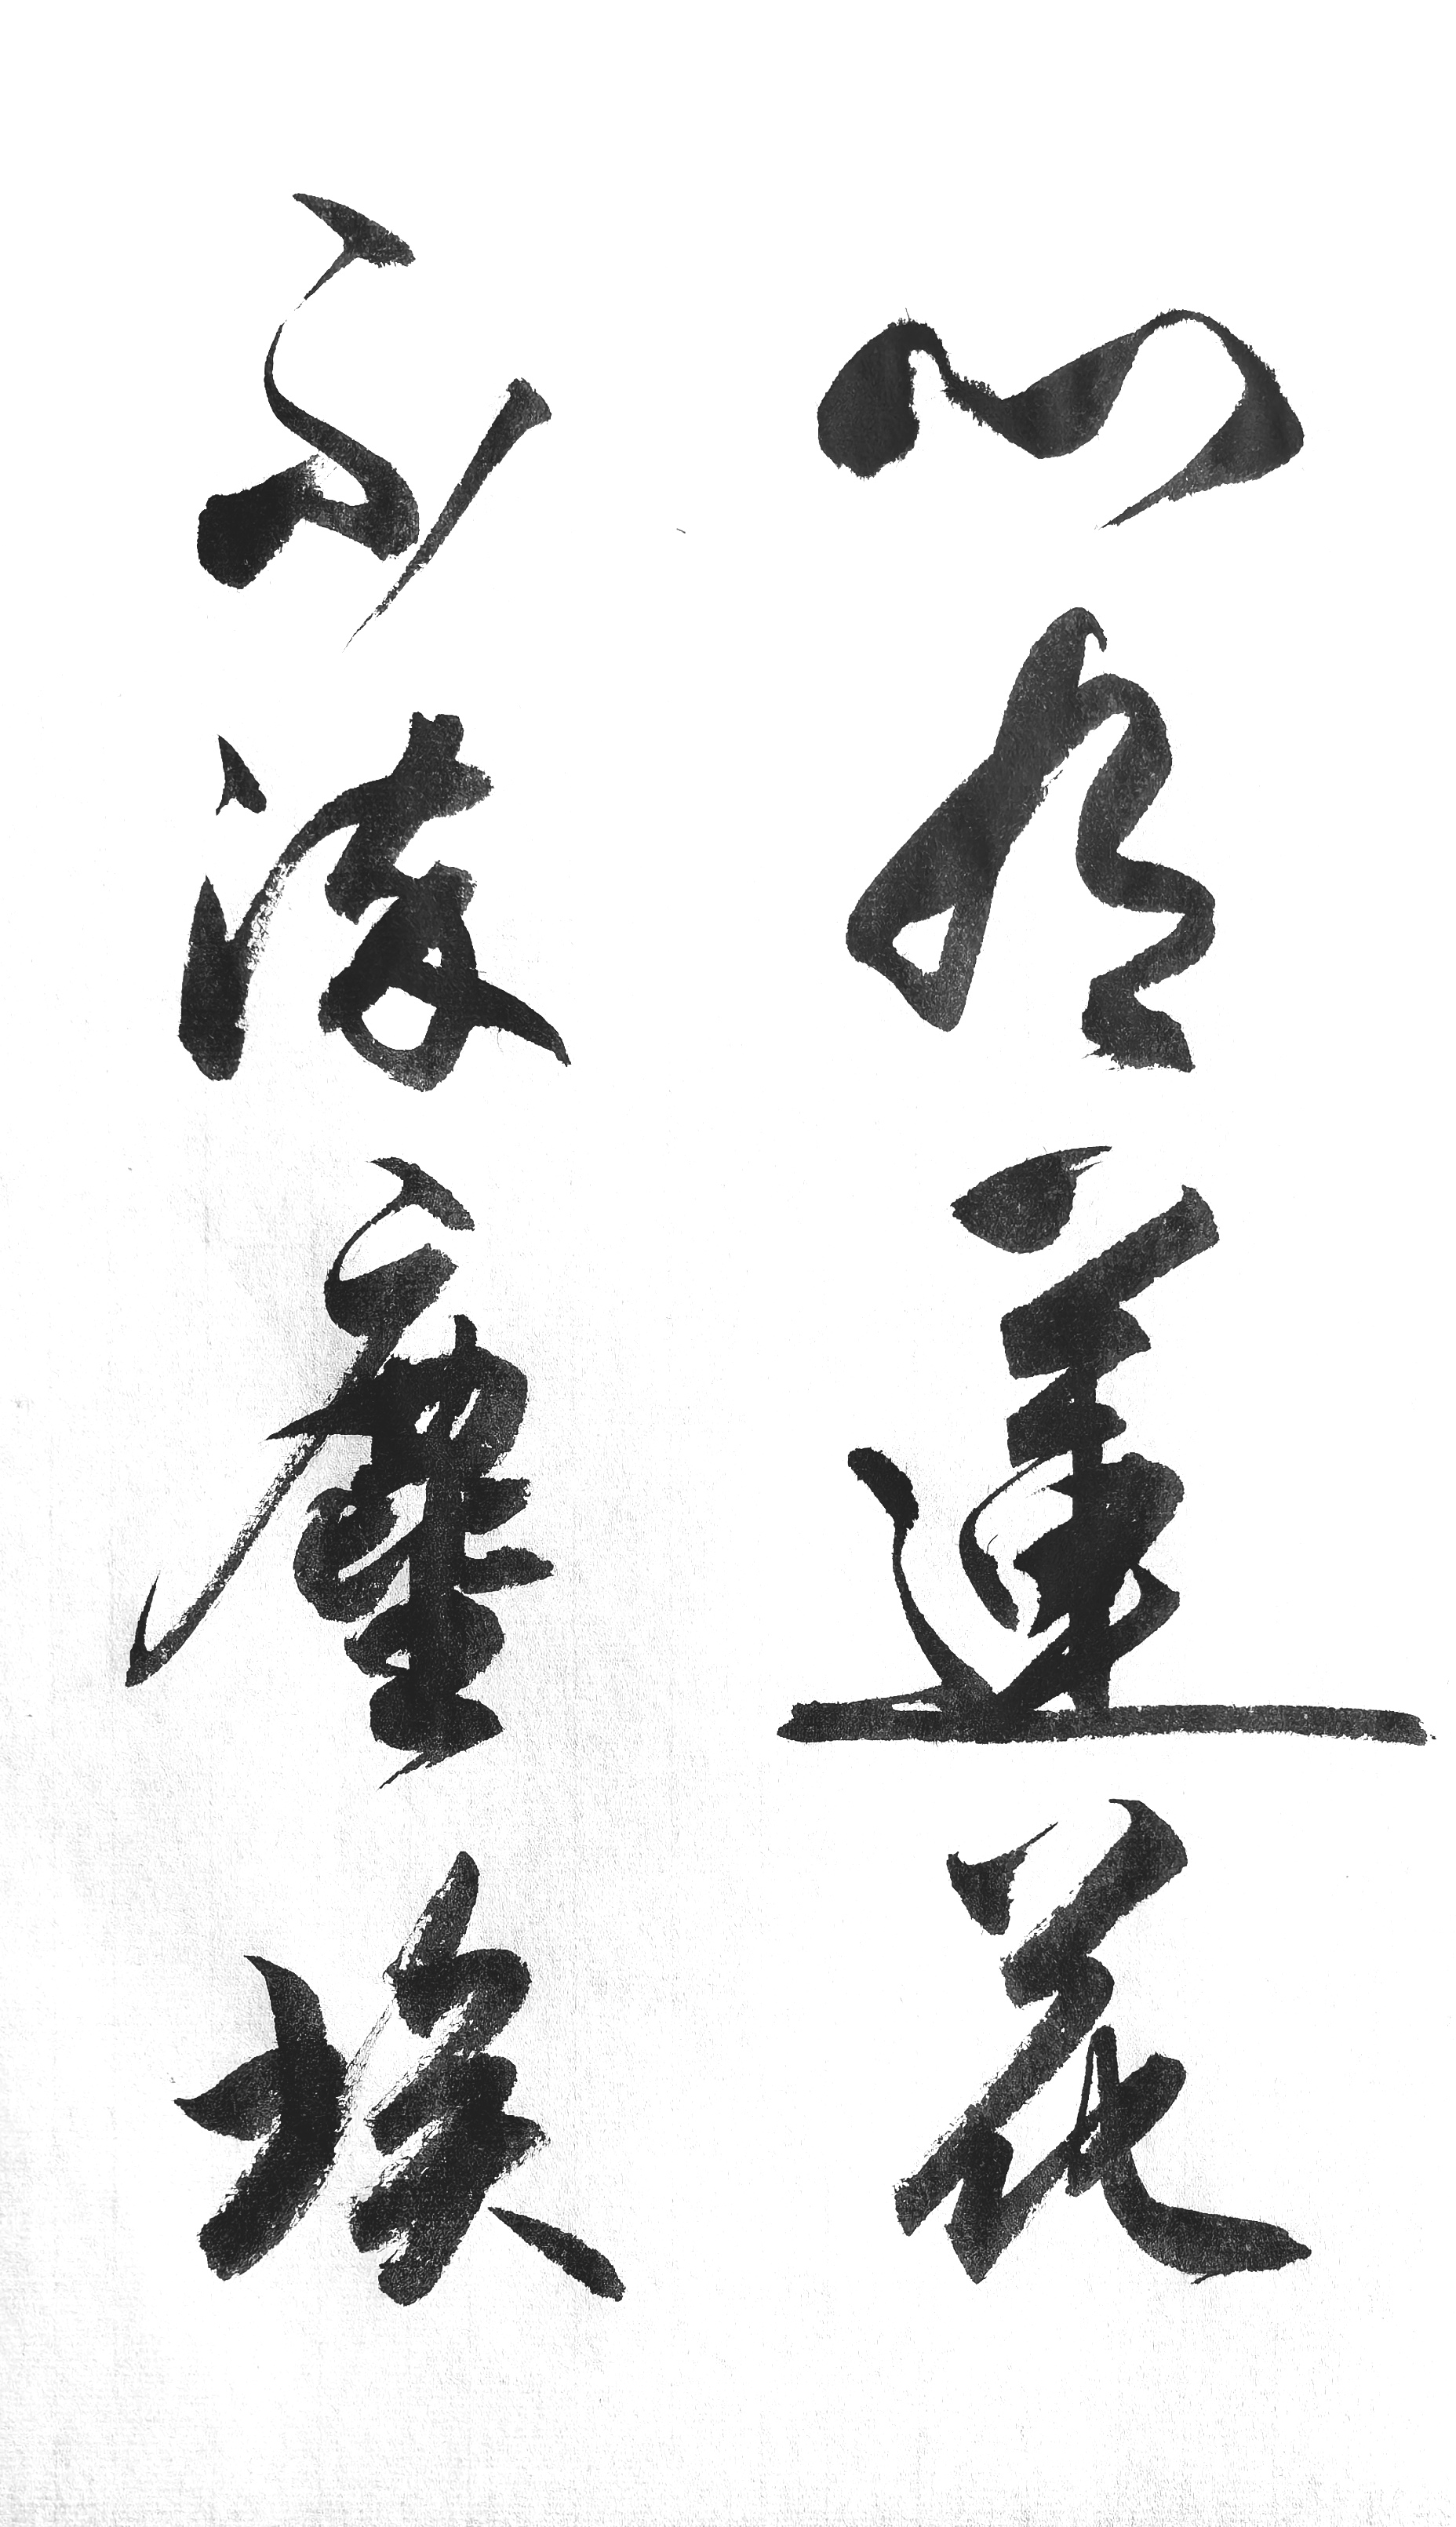 心有蓮花
不染塵埃